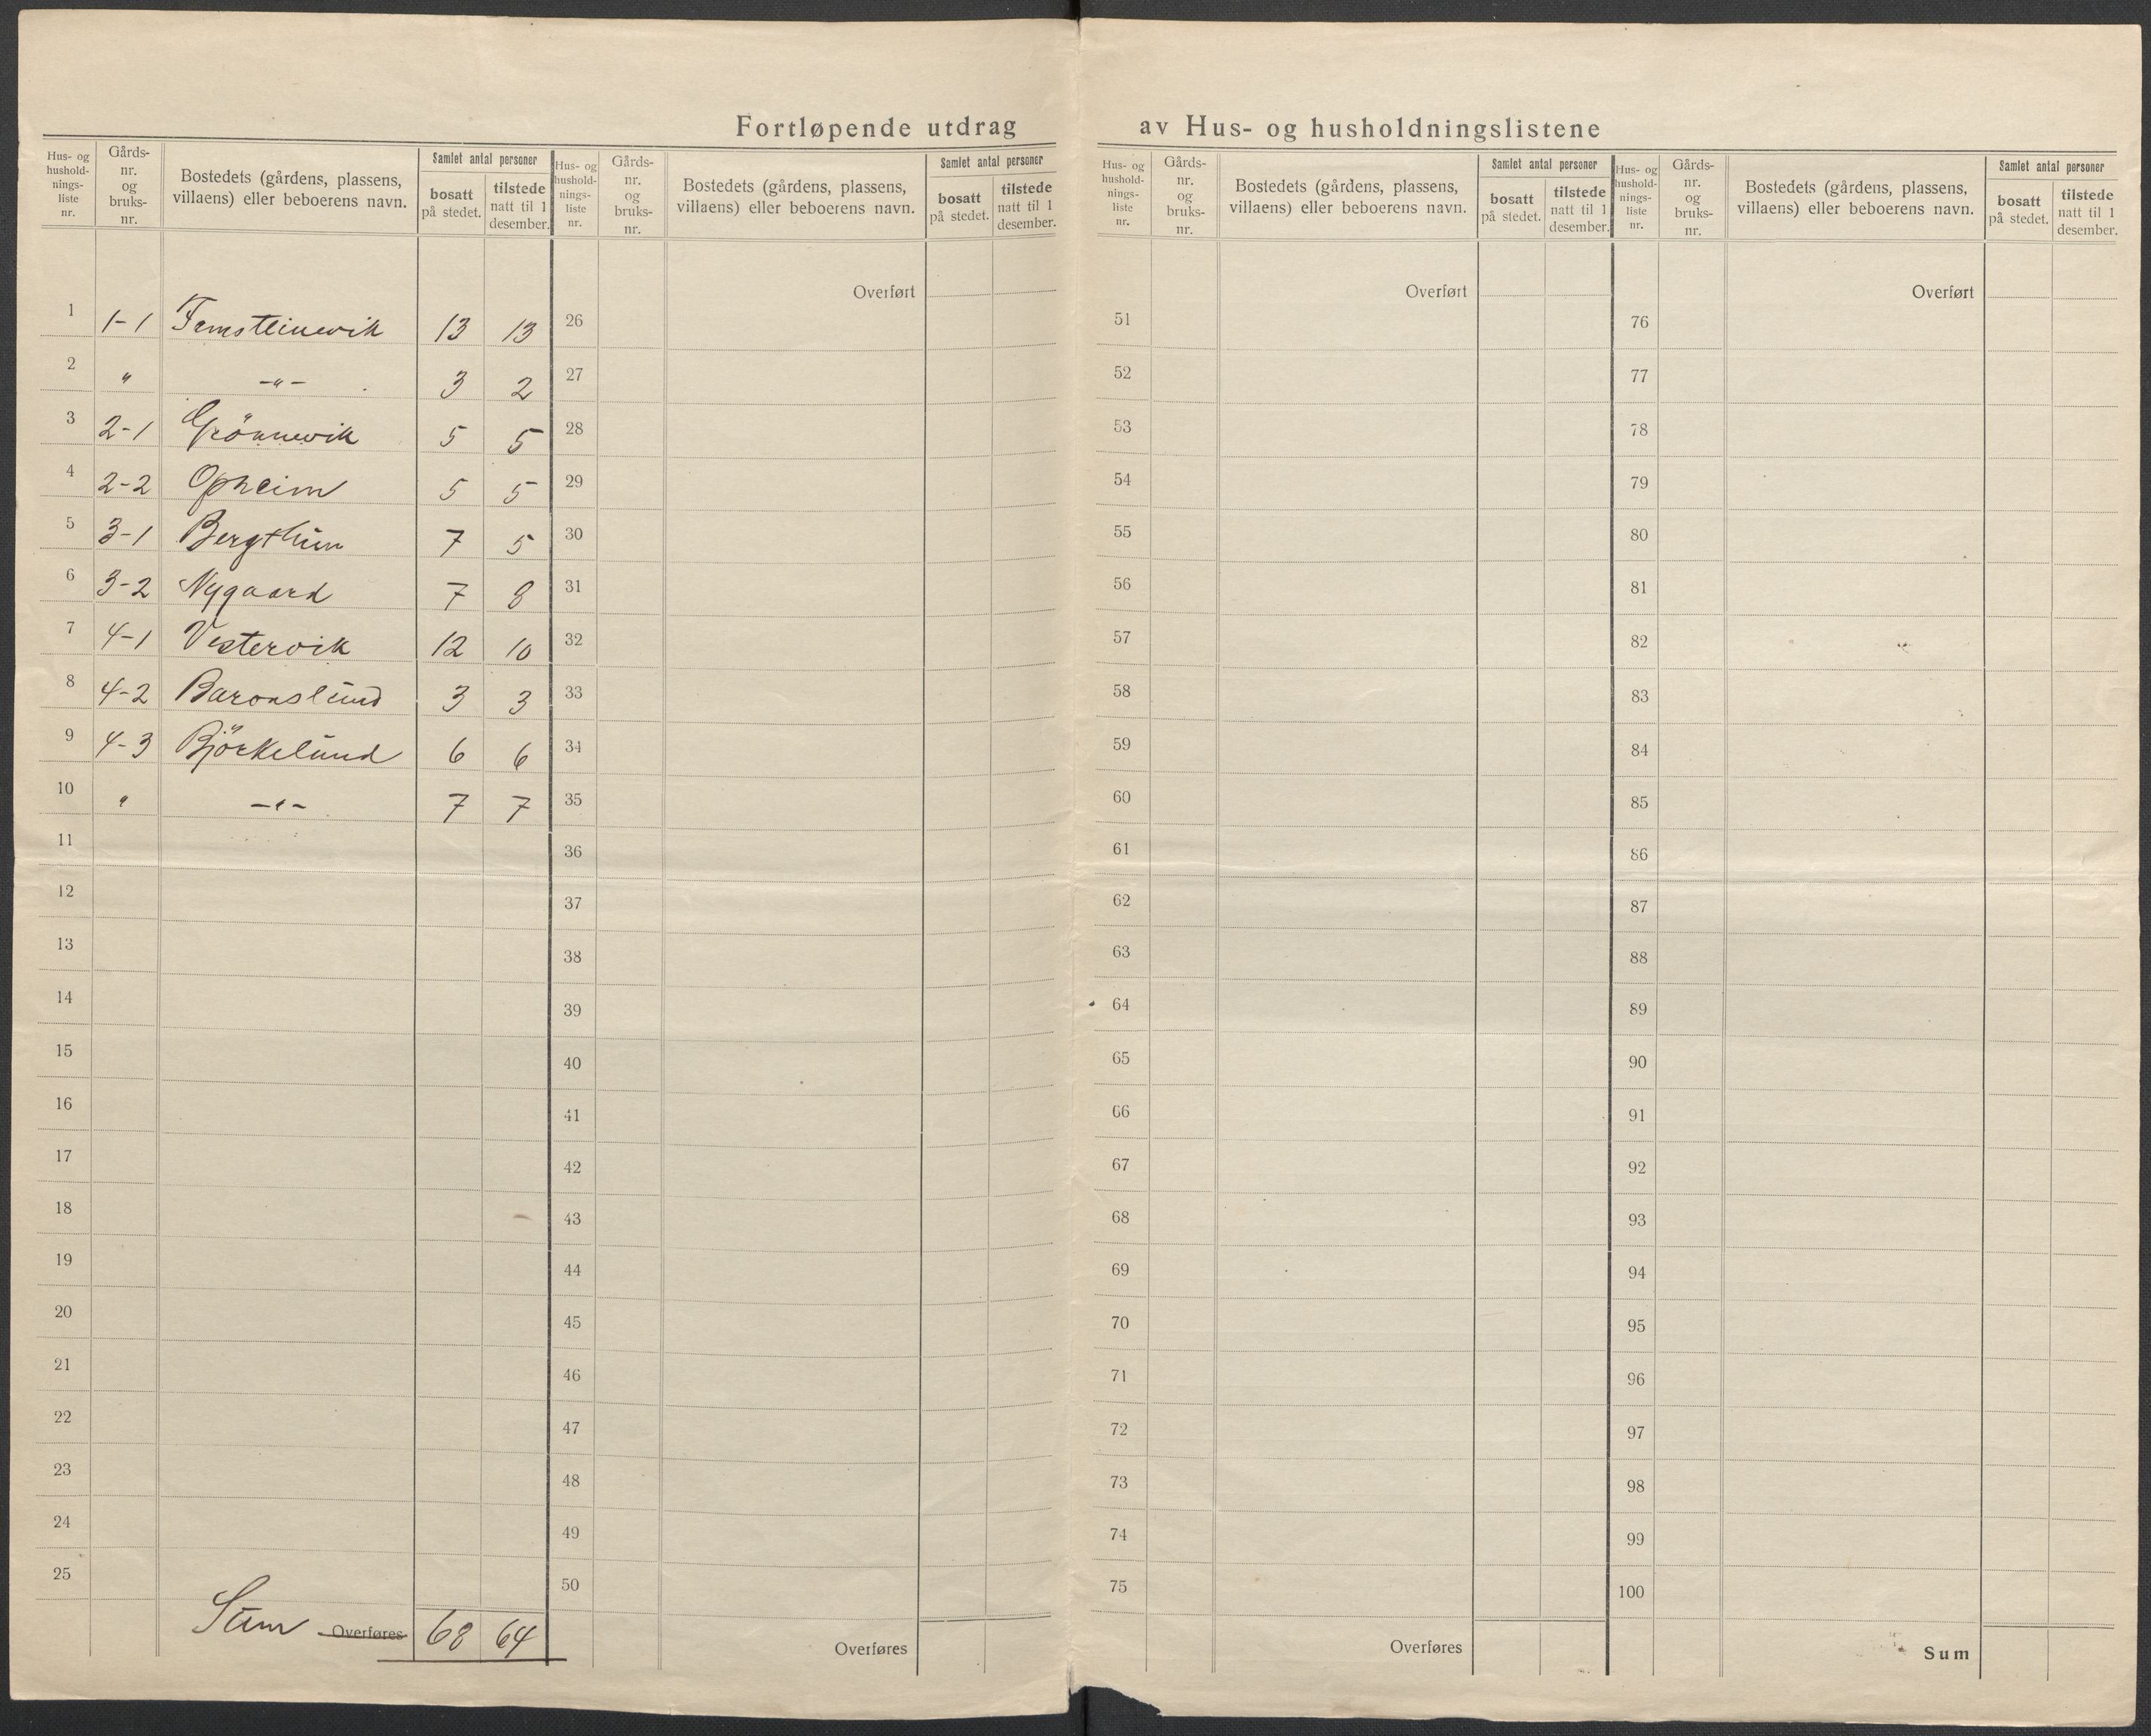 Fortløpende utdrag av Hus- og husholdningslistene
Hus- og hushold-nings-liste nr. | Gårds-nr. og bruks-nr. | Bostedets (gårdens, plassens, villaens) eller beboerens navn. | Samlet antal personer | bosatt på stedet. | tilstede natt til 1 desember.
1 | 1-1 | | 13 | 13
2 | " | -"- | 3 | 2
3 | 2-1 | Grönnevik | 5 | 5
4 | 2-2 | Opheim | 5 | 5
5 | 3-1 | | 7 | 5
6 | 3-2 | Nygaard | 7 | 8
7 | 4-1 | Vestervik | 12 | 10
8 | 4-2 | Baronslund | 3 | 3
9 | 4-3 | Björkelund | 6 | 6
10 | " | -"- | 7 | 7
11
12
13
14
15
16
17
18
19
20
21
22
23
24
25
Sum Overføres | 68 | 64
Hus- og hushold-nings-liste nr. | Gårds-nr. og bruks-nr. | Bostedets (gårdens, plassens, villaens) eller beboerens navn. | Samlet antal personer | bosatt på stedet. | tilstede natt til 1 desember.
Overført
26
27
28
29
30
31
32
33
34
35
36
37
38
39
40
41
42
43
44
45
46
47
48
49
50
Overføres
Hus- og hushold-nings-liste nr. | Gårds-nr. og bruks-nr. | Bostedets (gårdens, plassens, villaens) eller beboerens navn. | Samlet antal personer | bosatt på stedet. | tilstede natt til 1 desember.
Overført
51
52
53
54
55
56
57
58
59
60
61
62
63
64
65
66
67
68
69
70
71
72
73
74
75
Overføres
Hus- og hushold-nings-liste nr. | Gårds-nr. og bruks-nr. | Bostedets (gårdens, plassens, villaens) eller beboerens navn. | Samlet antal personer | bosatt på stedet. | tilstede natt til 1 desember.
Overført
76
77
78
79
80
81
82
83
84
85
86
87
88
89
90
91
92
93
94
95
96
97
98
99
100
Sum